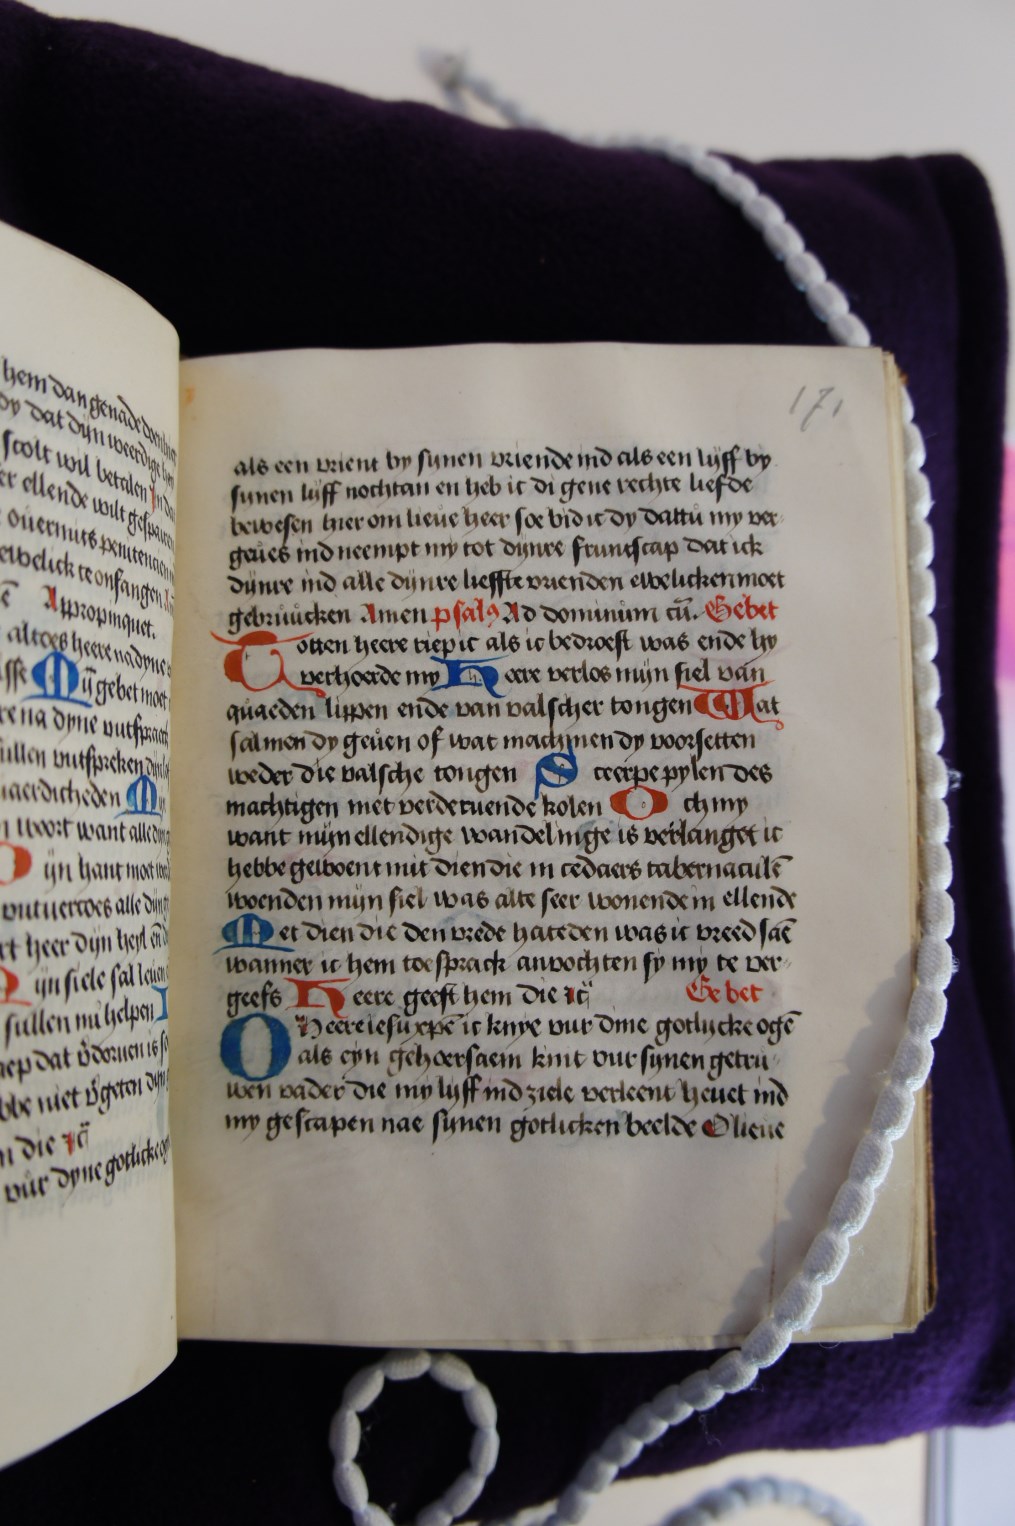 hem dan genade
dy dat dyn weerdige
scolt wil betalen
er ellende wilt
ouermits penitencien
ewelick te onfangen
Appropinquet.
altoes heere na dyne
Mÿ gebet moet
na dyne vutspraeck
sullen vutspreken
woort want alle
ijn hant moet
vutuercoes alle
heer dijn heyl en̄
ijn siele sal leuen
sullen mi helpen
dat
niet
die
vur dyne gotlicke
171
als een vrient by synen vriende ind als een lijff by
synen lijff nochtan en heb ic di gene rechte liefde
bewesen hier om lieue heer soe bid ic dy dattu my ver-
geues ind neempt my tot dynre fruntscap dat ick
dynre ind alle dynre lieffte vrienden ewelicken moet
gebruucken Amen psalꝰ Ad dominum cū. Gebet
Totten heere riep ic als ic bedroeft was ende hy
verhoerde my Heere verlos mijn siel van
quaeden lippen ende van valscher tongen Wat
sal men dy geuen of wat mach men dy voorsetten
weder die valsche tongen Sceerpe pylen des
machtigen met verderuende kolen Och my
want mijn ellendige wandelinige is verlanget ic
hebbe gewoent mit dien die in cedaers tabernaculē
woenden mijn siel was alte seer wonende in ellende
Met dien die den vrede hateden was ic vreedsāē
wanner ic hem toe sprack anvochten sy my te ver-
geefs Heere geeft hem die rc̄ Gebet
O Heere iesu xpē ic knye vur dine gotlycke ogē
als eyn gehoersaem kint vur synen getru-
wen vader die my lyff ind ziele verleent heuet ind
my gescapen nae synen gotlicken beelde O lieue